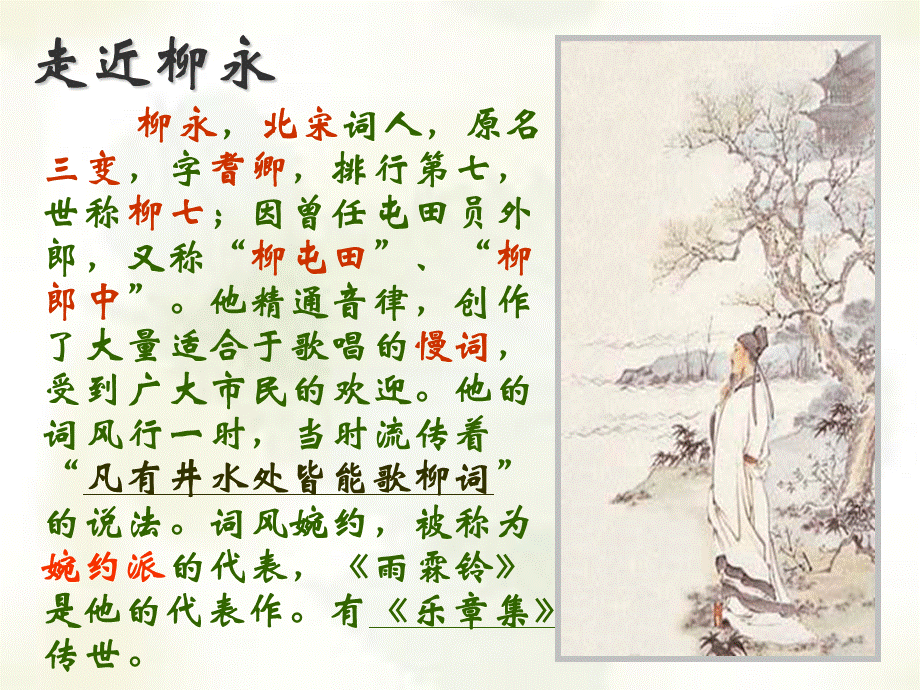 走近柳永
柳永，北宋词人，原名
三变，字耆卿，排行第七，
世称柳七；因曾任屯田员外
郎，又称“柳屯田”、“柳
郎中”。他精通音律，创作
了大量适合于歌唱的慢词，
受到广大市民的欢迎。他的
词风行一时，当时流传着
“凡有井水处皆能歌柳词”
的说法。词风婉约，被称为
婉约派的代表，《雨霖铃》
是他的代表作。有《乐章集》
传世。